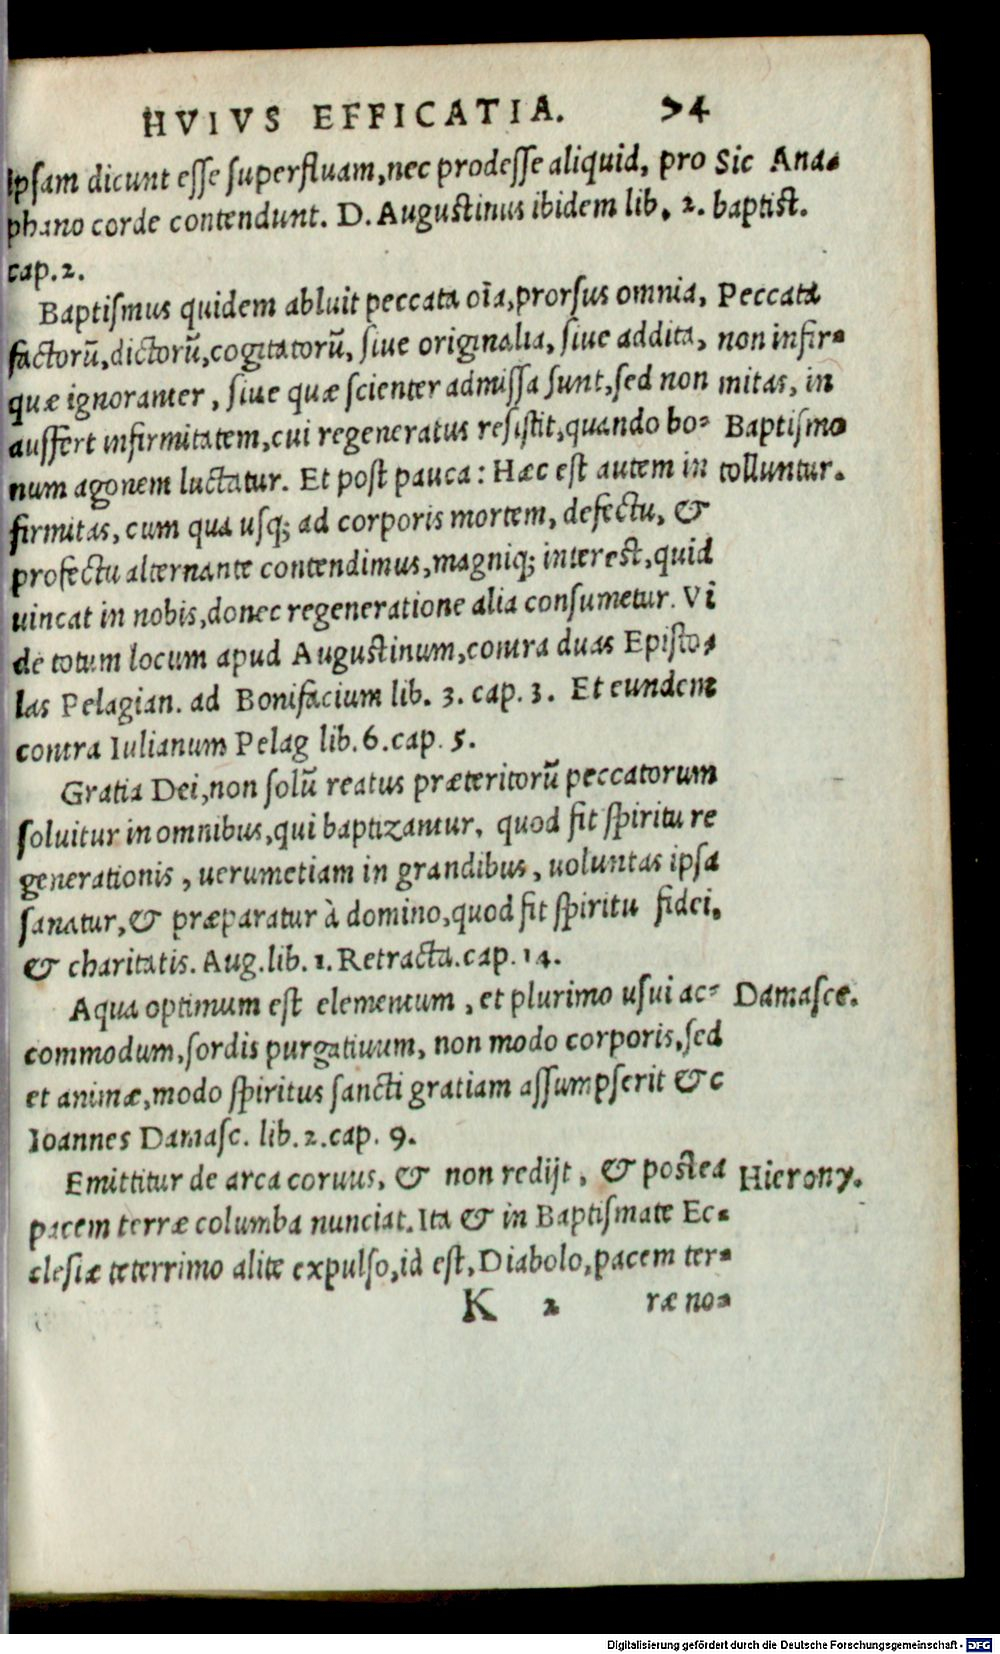 HVIVS EFFICATIA. 74
Ipsam dicunt esse superfluam, nec prodesse aliquid, pro
phano corde contendunt. D. Augustinus ibidem lib. 2.
cap. 2.
Sic Ana-
baptist.
Baptismus quidem abluit peccata oīa, prorsus omnia,
factorū, dictorū, cogitatorū, siue originalia, siue addita,
quæ ignoranter, siue quæ scienter admissa sunt, sed non
auffert infirmitatem, cui regeneratus resistit, quando bo-
num agonem luctatur. Et post pauca: Hæc est autem in
firmitas, cum qua usq; ad corporis mortem, defectu, &
profectu alternante contendimus, magniq; interest, quid
uincat in nobis, donec regeneratione alia consumetur. Vi
de totum locum apud Augustinum, contra duas Episto-
las Pelagian. ad Bonifacium lib. 3. cap. 3. Et eundem
contra Iulianum Pelag lib. 6. cap. 5.
Peccata
non infir-
mitas, in
Baptismo
tolluntur.
Gratia Dei, non solū reatus præteritorū peccatorum
soluitur in omnibus, qui baptizantur, quod fit spiritu re
generationis, uerumetiam in grandibus, uoluntas ipsa
sanatur, & præparatur à domino, quod fit spiritu fidei,
& charitatis. Aug. lib. 1. Retracta. cap. 14.
Aqua optimum est elementum, et plurimo usui ac-
commodum, sordis purgatiuum, non modo corporis, sed
et animæ, modo spiritus sancti gratiam assumpserit &c
Ioannes Damasc. lib. 2. cap. 9.
Damasce.
Emittitur de arca coruus, & non redijt, & postea
pacem terræ columba nunciat. Ita & in Baptismate Ec-
clesiæ teterrimo alite expulso, id est, Diabolo, pacem ter-
Hierony.
K 2 ræ no-
Digitalisierung gefördert durch die Deutsche Forschungsgemeinschaft - DFG